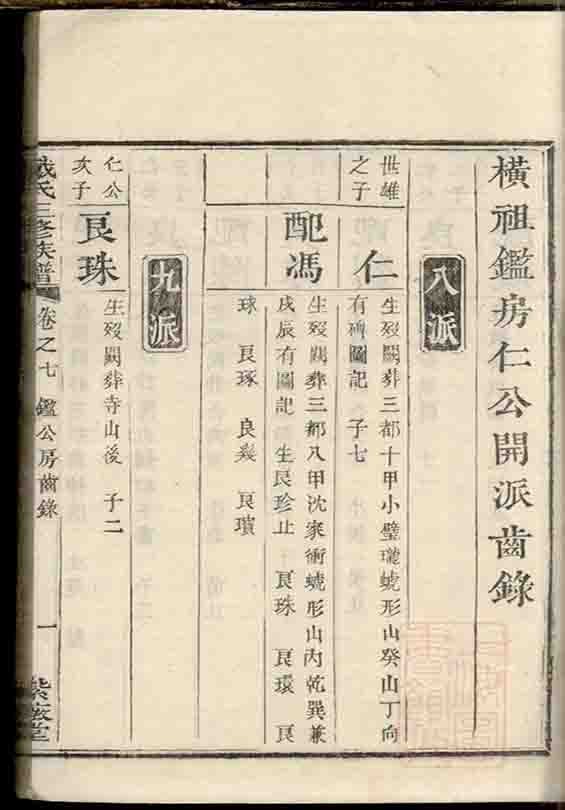 橫祖鑑房仁公開派齒錄
八派
世雄之子
仁
生歿闕葬三都十甲小壁瓏蛯形山癸山丁向
有碑圖記 子七
配馮
生歿闕葬三都八甲沈家衕蛯形山内乾巽兼
戌辰有圖記 生良珍止 良珠 良環 良
球 良琢 良髮 良瓆
九派
仁公次子
良珠
生歿闕葬寺山後 子二
戴氏三修族譜 卷之七 鑑公房齒錄 一 紫薇堂